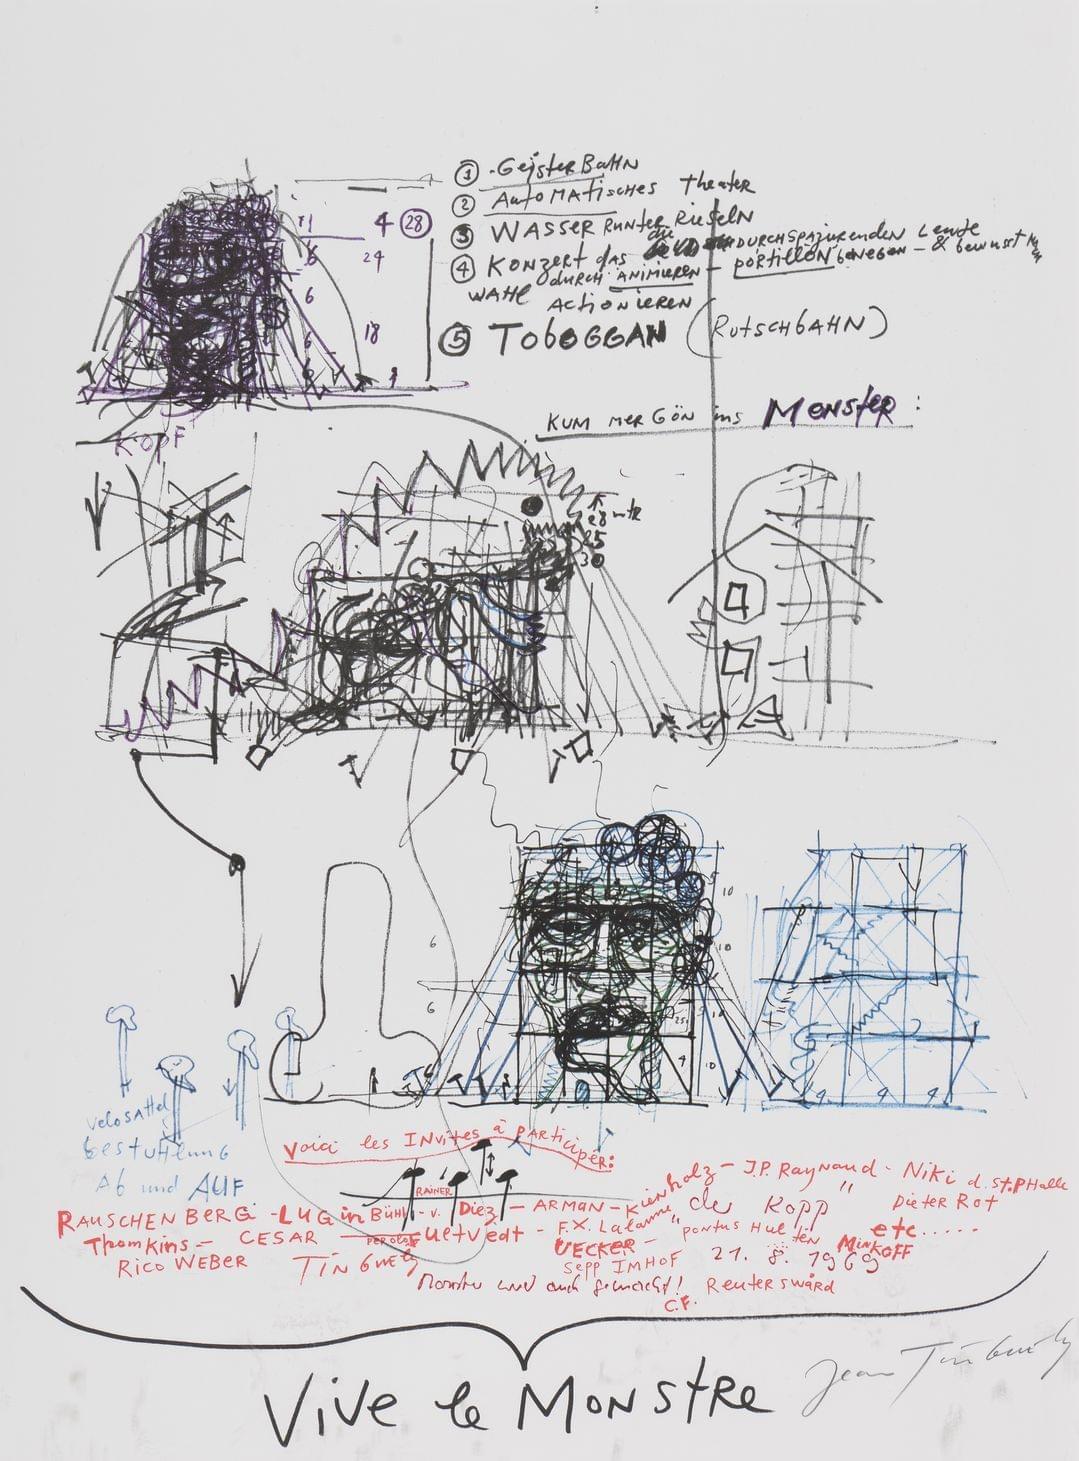 ① Geister Bahn
② Automatisches Theater
③ Wasser runter Rieseln
④ Konzert das durchspazurenden Leute
durch animieren - portillon bewegen - & bewusst
Wahl actionieren
⑤ Toboggan (Rutschbahn)
4 ㉘
24
6
18
6
Kopf
Kum mer Gön ins Monster:
28 mtr
25
30
10
6
10
6
25
10
4
10
4 4 4
Velosattel
Bestuhlung
Ab und Auf
Voici les Invités à participer:
Rainer
Rauschenberg - Luginbühl - v. Diez - Arman - Kienholz - J.P. Raynaud - Niki d. St. Phalle
"de Kopp" Dieter Rot
Thomkins - Cesar - Per Olof Ultvedt - F.X. Lalanne pontus Hulten Minkoff etc.....
Rico Weber Tinguely Uecker - Sepp Imhof 21. 8. 1969
Reuterswård
C.F.
Vive le Monstre
Jean Tinguely